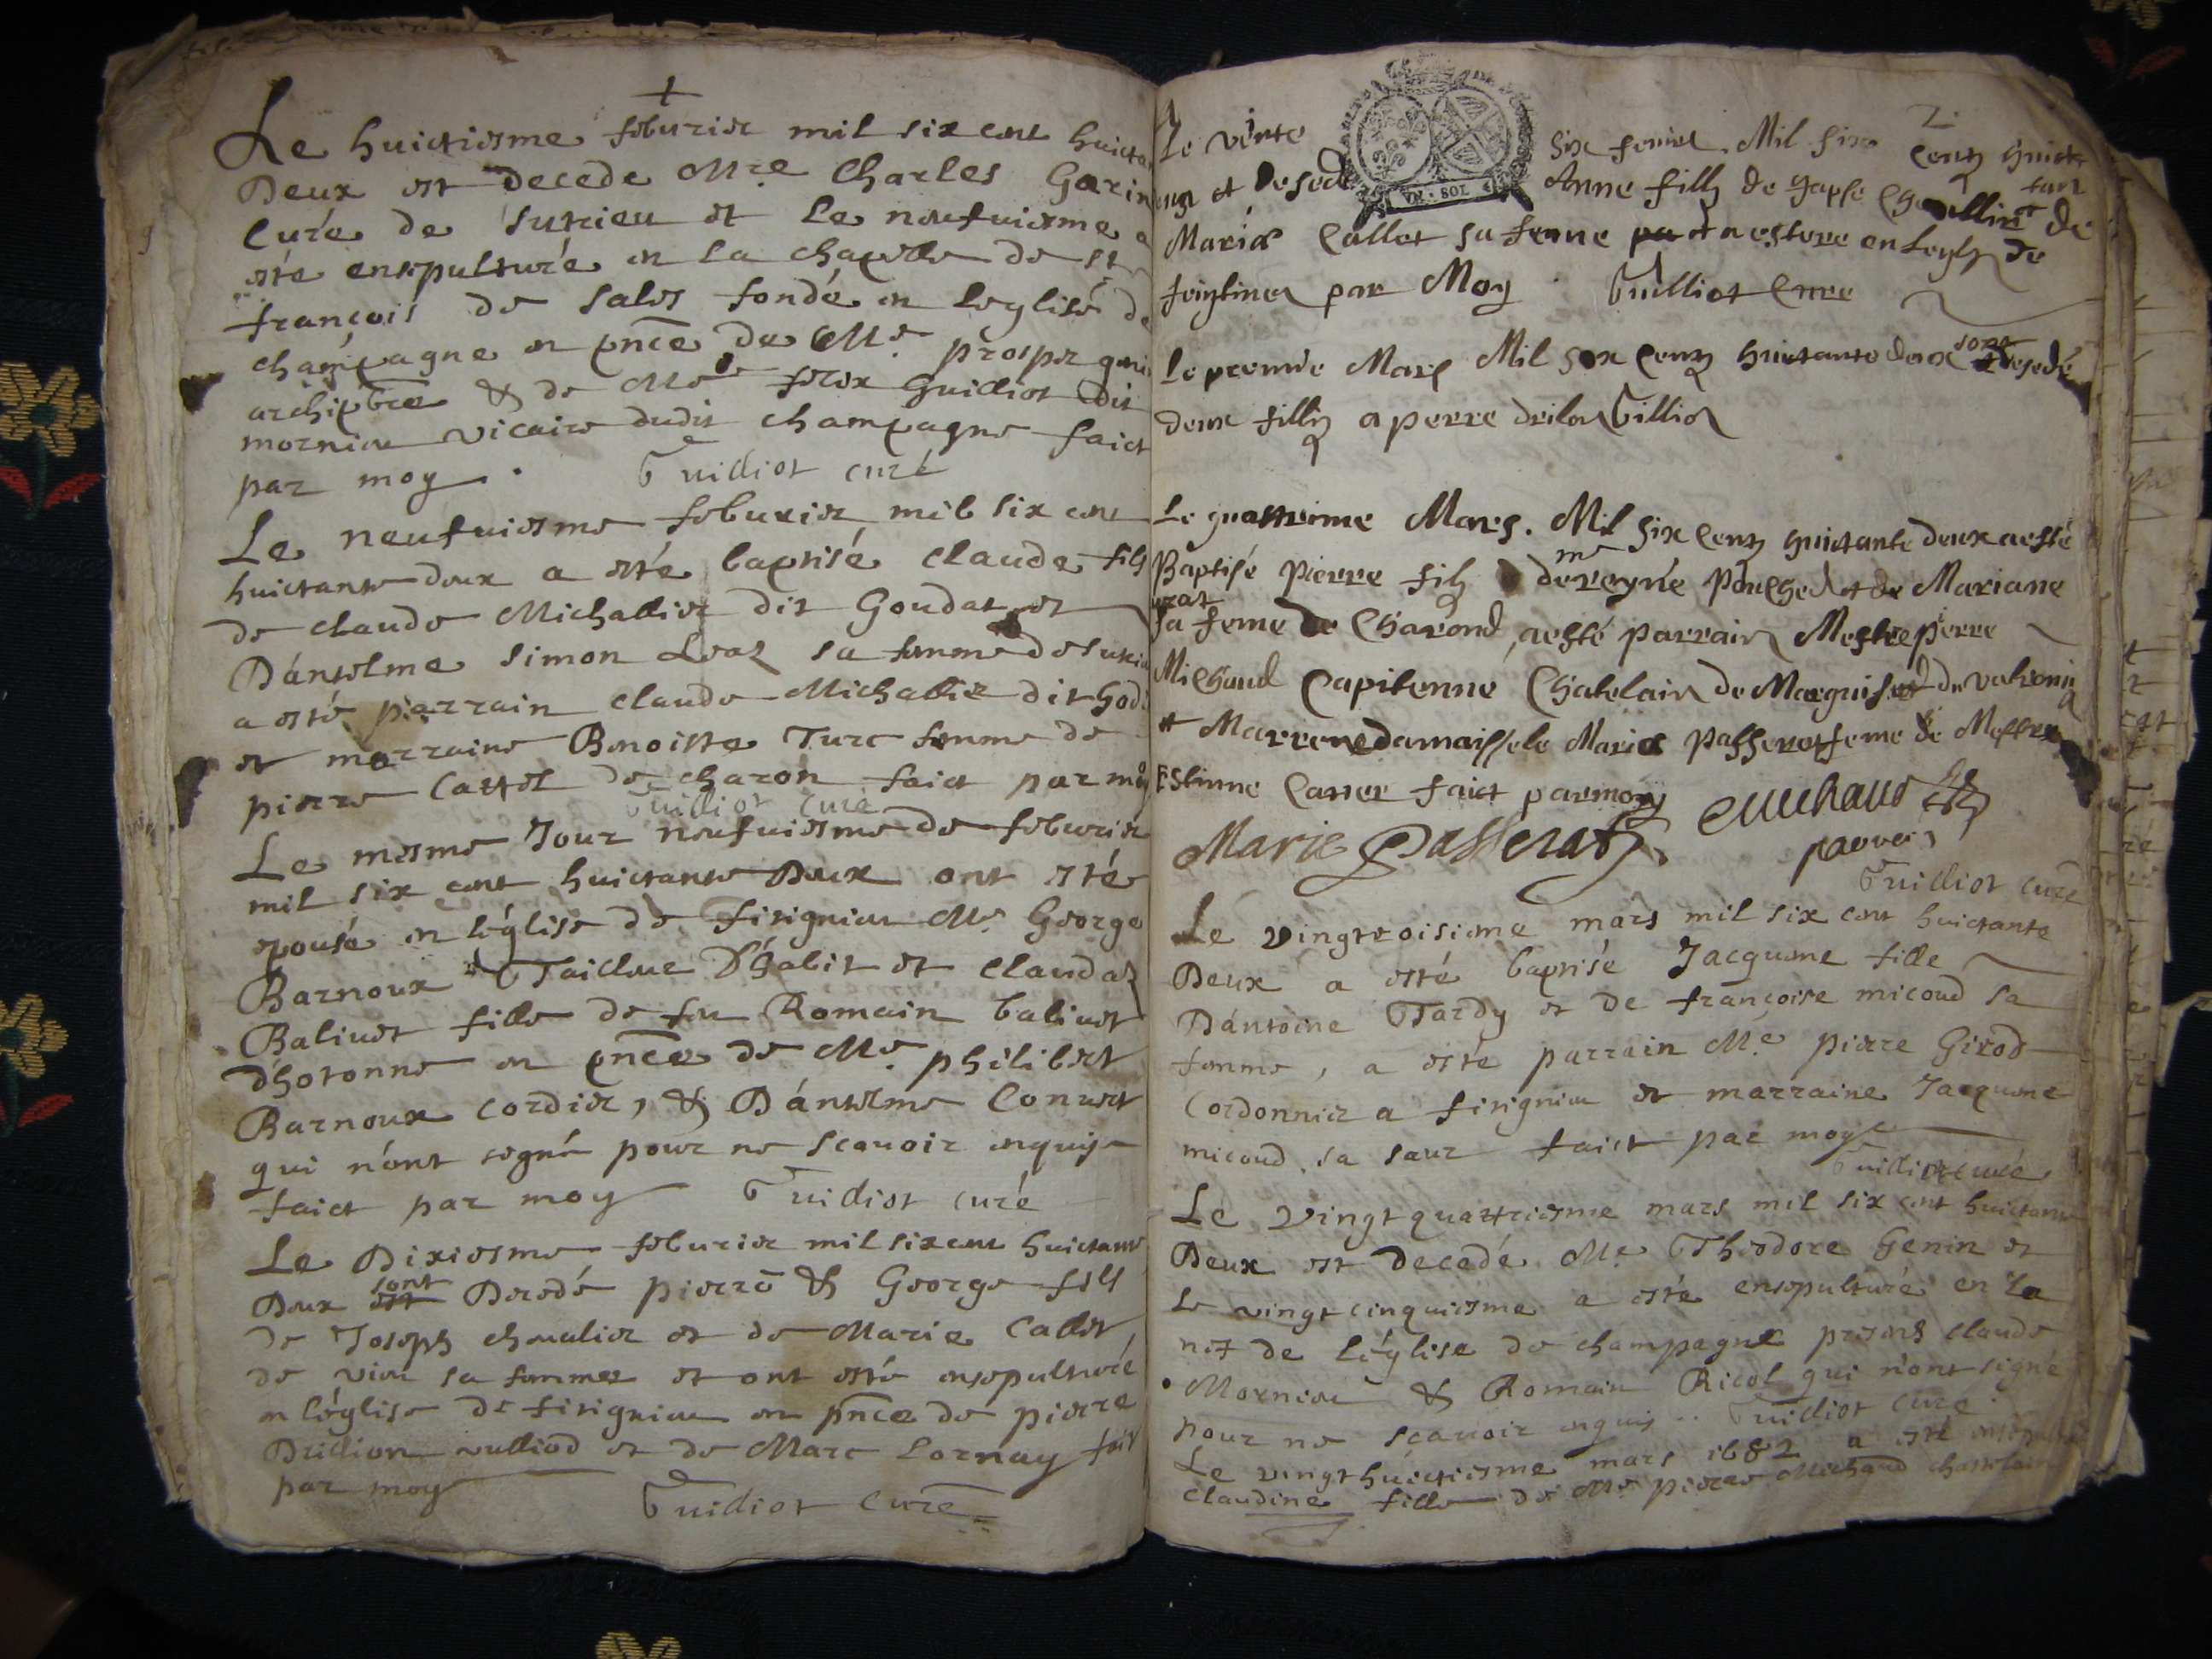 Le huictiesme feburier mil six cent huicta
Deux est decede Mre Charles Garin
Curé de Sutrieu et Le neufuiesme a
esté ensepulturé en la chapelle de st
françois de sales fondé en leglise de
champagne en pnce de Me prosper
archiptre & de Me guilliot dit
mornieu vicaire dudit champagne faict
par moy. Guilliot curé
Le neufuiesme feburier mil six cent
huictante deux a esté baptisé claude fils
de claude Michallier dit Goudat et
D'anthelme simon sa femme de sutrieu
a esté parrain claude Michallier dit
et marraine Benoiste Turc femme de
pierre Carrel de charon faict par moy
Guilliot curé
Le mesme Jour neufuiesme de feburier
mil six cent huictante Deux ont esté
epousé en léglise de fitignieu Me George
Barnoux Tailleur D'habit et Claudaz
Baliuet fille de feu Romain baliuet
d'hotonne en pnce de Me philibert
Barnoux cordier, & D'antelme Conuert
qui n'ont signé pour ne scauoir enquis
faict par moy Guilliot curé
Le Dixiesme feburier mil six cent huictante
Deux est sont Decedé pierre & George fils
de Joseph cheualier et de Marie Callet
de vieu sa femme et ont esté ensepulturé
en léglise de fitignieu en pnce de pierre
Drillion vulliod et de Marc Lornay fait
par moy
Guilliot Curé
2
Le vinte six feuriel Mil six Centz huictante
deux et desedé Anne filly de et de
Maria Callet sa feme en Leglz de
par Moy Guilliot Curre
Le premie Mars Mil six Centz huictante deux sont desedé
deux filly a perre
Le quatrime Mars. Mil six Centz huictante deux a esté
Baptisé Pierre filz de me et de Mariane
sa feme de Charond, a esté parrain Mestre pierre
Michaud Capitenne Chatelain de Marquisat de valromy
et Marrene damaissele Maria Passerat feme de Mestre
Estinne Carrer faict par moy
Marie Passerat. Michaud
parrain
Guilliot curé
Le vingtroisieme mars mil six cent huictante
Deux a esté baptisé Jacqueme fille
D'antoine Tardy et de françoise micoud sa
femme, a esté parrain Me pierre Girod
Cordonnier a fitignieu et marraine Jacqueme
micoud sa sœur faict par moy
Guilliot curé
Le vingt quattriesme mars mil six cent huictante
Deux est decedé Me Theodore Genin et
le vingt cinquiesme a esté ensepulturé en la
nef de l'église de champagne presents claude
Mornieu & Romain Ricol qui n'ont signé
pour ne scauoir enquis. Guilliot curé
Le vingthuictiesme mars 1682 a esté ensepulturé
claudine fille de Me pierre Michaud chastelain